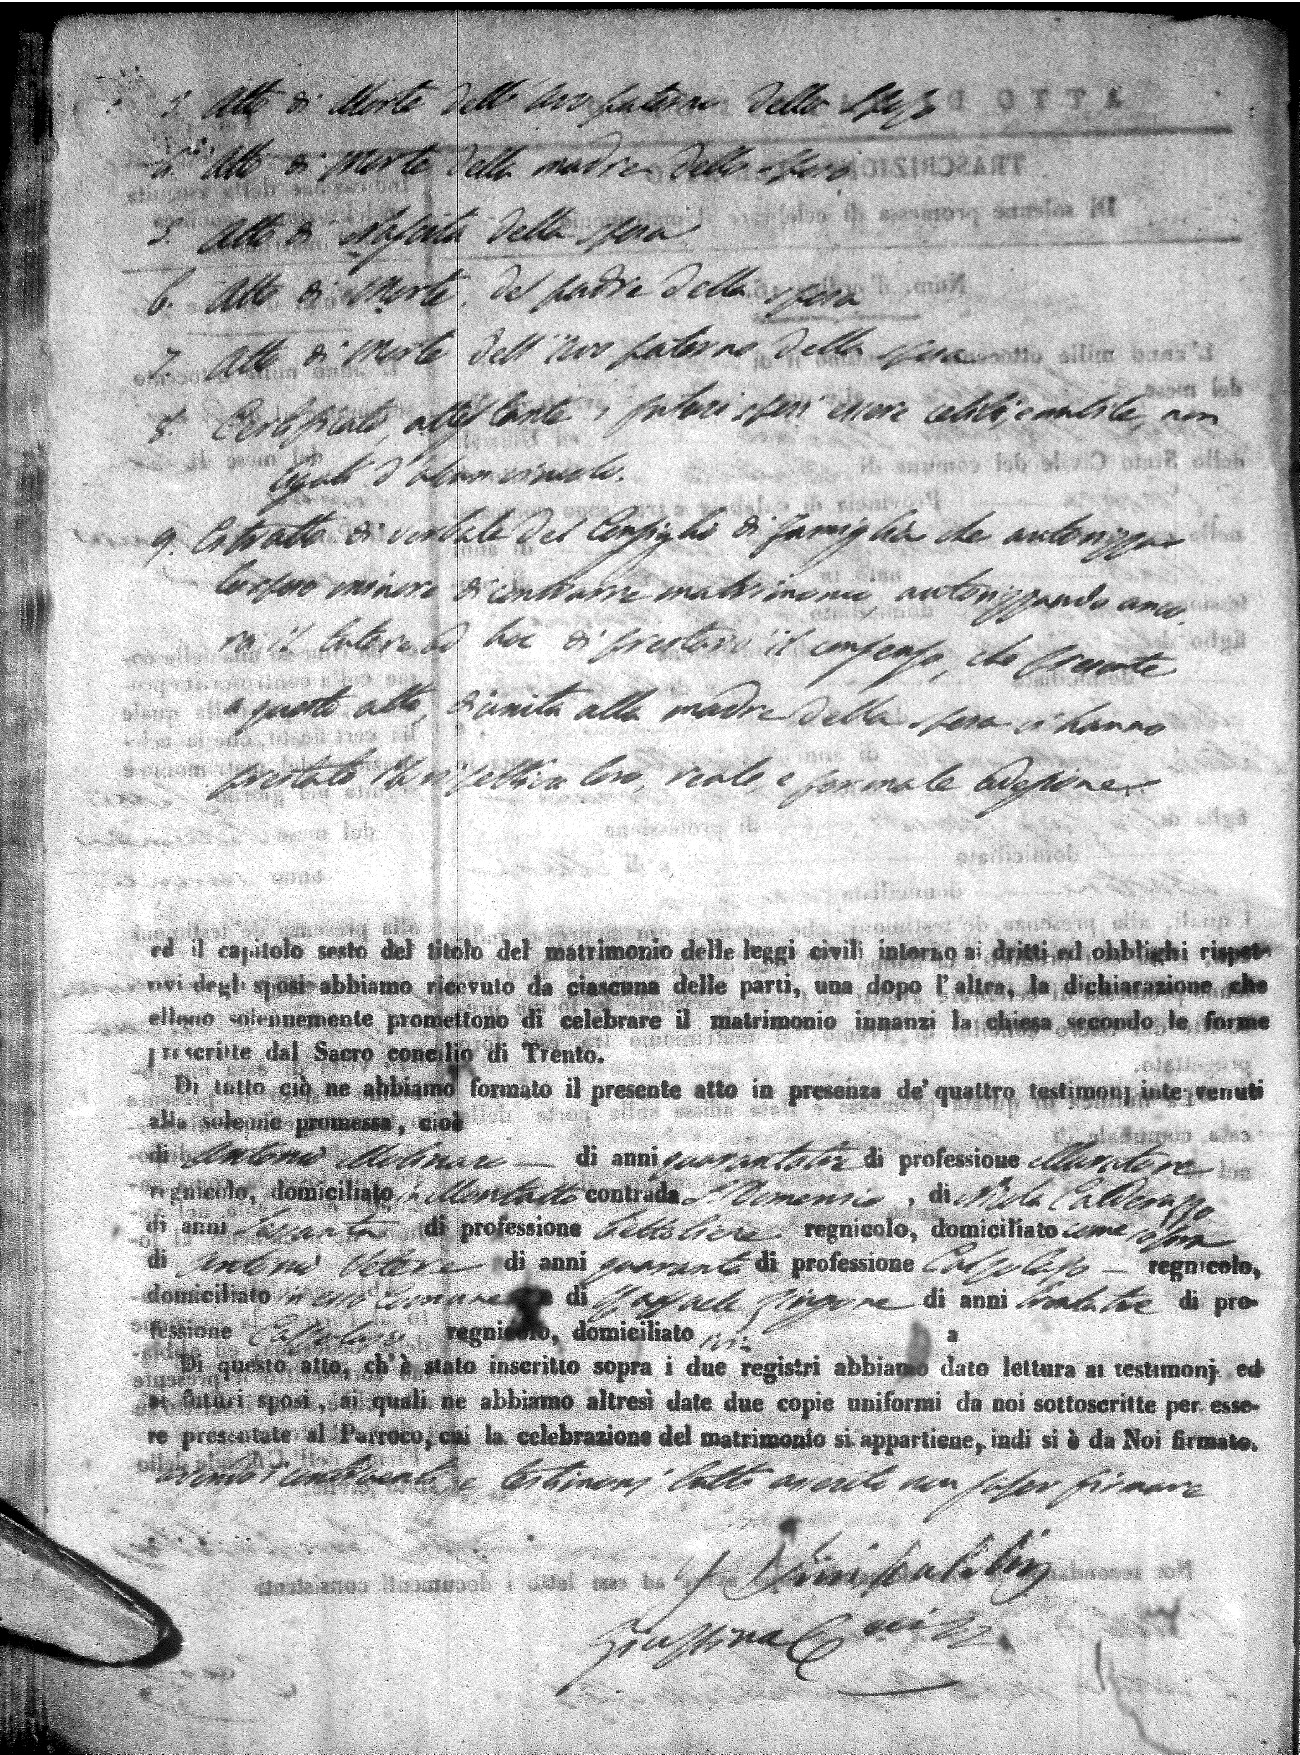 3. Atto di Morte dell'Avo paterno dello sposo
4. Atto di Morte della madre dello sposo
5. Atto di Nascita della sposa
6. Atto di Morte del padre della sposa
7. Atto di Morte dell'Avo paterno della sposa
8. Certificato, attestante i futuri sposi essere celibi, e nubile, non
legati d'alcun vincolo.
9. Estratto di verbale del Consiglio di famiglia che autorizza
lo sposo minore di contrarre matrimonio, autorizzando anco-
ra il tutore ad hoc di prestare il consenso, che presente
a questo atto, di unita alla madre della sposa vi hanno
prestato la rispettiva loro, reale, e formale adesione
ed il capitolo sesto del titolo del matrimonio delle leggi civili intorno ai dritti ed obblighi rispet-
tivi degli sposi abbiamo ricevuto da ciascuna delle parti, una dopo l'altra, la dichiarazione che
elleno solennemente promettono di celebrare il matrimonio innanzi la chiesa secondo le forme
prescritte dal Sacro concilio di Trento.
Di tutto ciò ne abbiamo formato il presente atto in presenza de' quattro testimonj intervenuti
alla solenne promessa, cioè
di Antonio Molinaro — di anni di professione Muratore
regnicolo, domiciliato in Montalto contrada , di Nicola Calderazzo
di anni Sessanta di professione Bettoliere regnicolo, domiciliato come sopra
di Antonio Vetere di anni quaranta di professione Calzolajo — regnicolo,
domiciliato di Raffaele Zingone di anni di pro-
fessione Calzolajo regnicolo, domiciliato ivi a
Di questo atto, ch'è stato inscritto sopra i due registri abbiamo dato lettura ai testimonj ed
ai futuri sposi, ai quali ne abbiamo altresì date due copie uniformi da noi sottoscritte per esse-
re presentate al Parroco, cui la celebrazione del matrimonio si appartiene, indi si è da Noi firmato.
avendo i contraenti, e testimonj tutti asserito non saper firmare